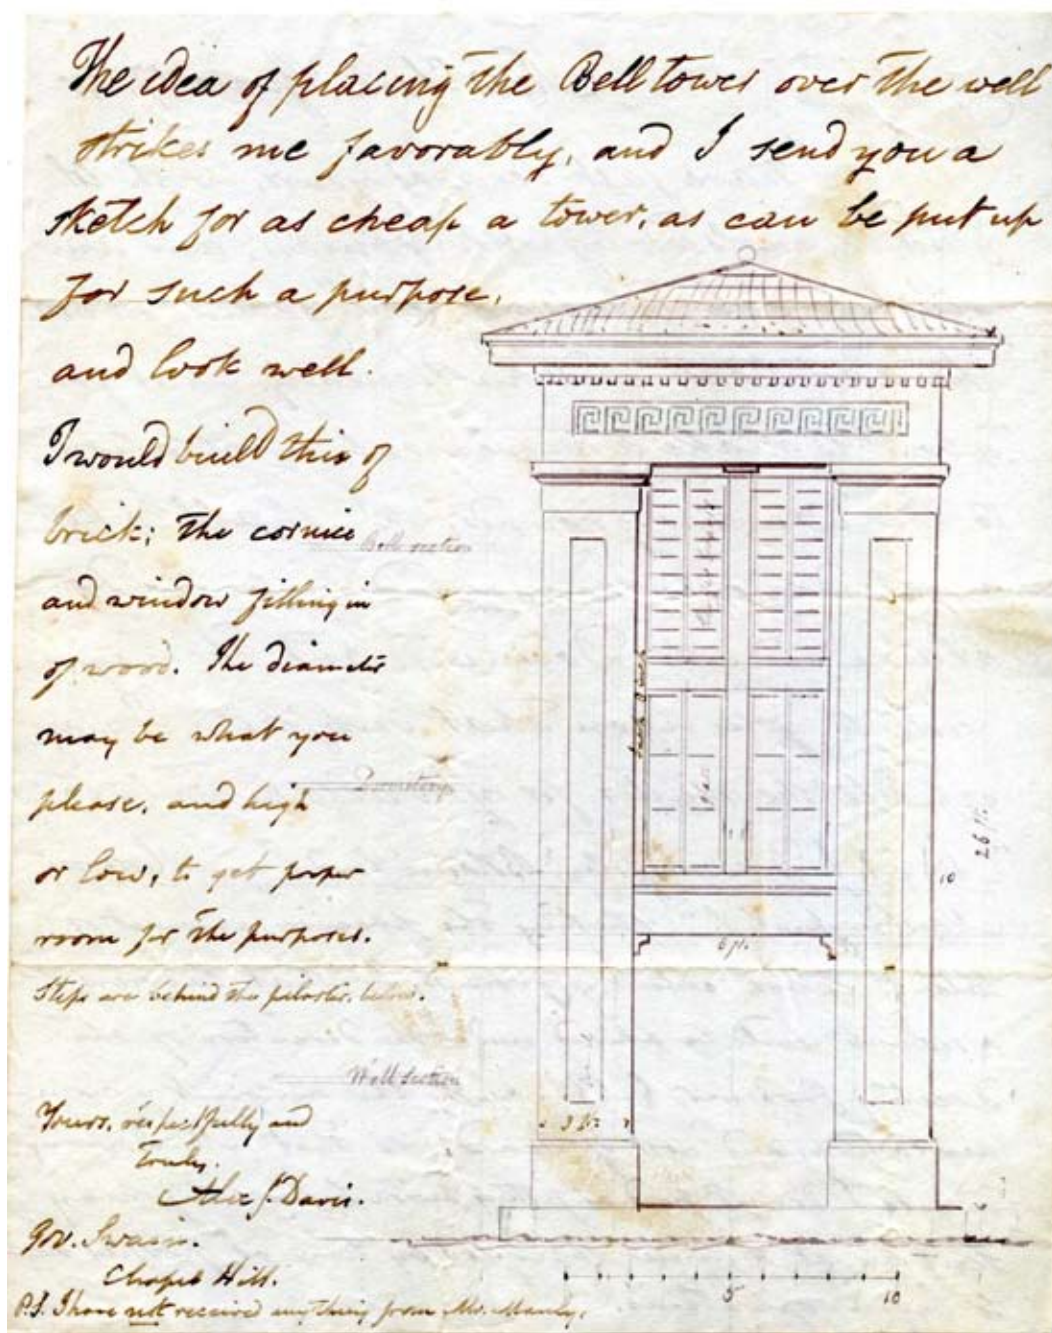 The idea of placing the Bell tower over the well
strikes me favorably, and I send you a
sketch for as cheap a tower, as can be put up
for such a purpose,
and look well.
I would build this of
brick; the cornice
and window filling in
of wood. The diameter
may be what you
please, and high
or low, to get proper
room for the purposes.
Steps are behind the pilaster, below.
Yours, respectfully and
Truly,
Alex J. Davis.
Gov. Swain.
Chapel Hill.
P.S. I have not received any thing from Mr. Manly.
Bell section
Dormitory
Well Section
6 ft.
3 ft.
26 ft.
10
5
10